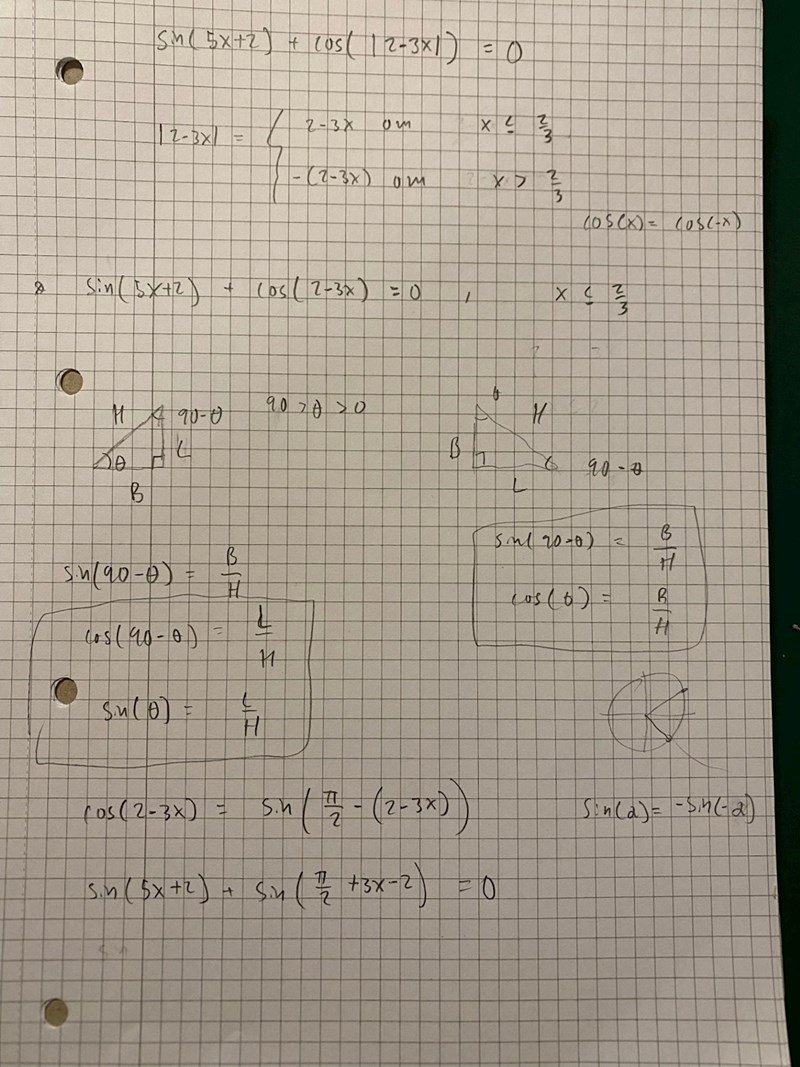 sin(5x+2) + cos(|2-3x|) = 0
|2-3x| = { 2-3x om x ≤ 2/3
-(2-3x) om x > 2/3
cos(x) = cos(-x)
sin(5x+2) + cos(2-3x) = 0 , x ≤ 2/3
H 90-θ 90 > θ > 0
θ L
B
θ H
B 90-θ
L
sin(90-θ) = B/H
cos(90-θ) = L/H
sin(θ) = L/H
sin(90-θ) = B/H
cos(θ) = B/H
cos(2-3x) = sin(π/2 - (2-3x))
sin(2) = -sin(-2)
sin(5x+2) + sin(π/2 + 3x - 2) = 0